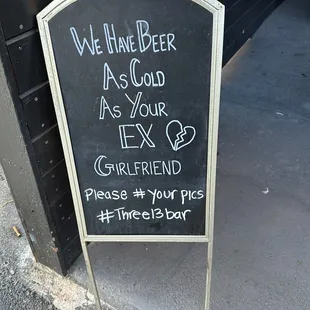 We Have Beer
As Cold
As Your
EX
Girlfriend
Please # your pics
#Three13bar